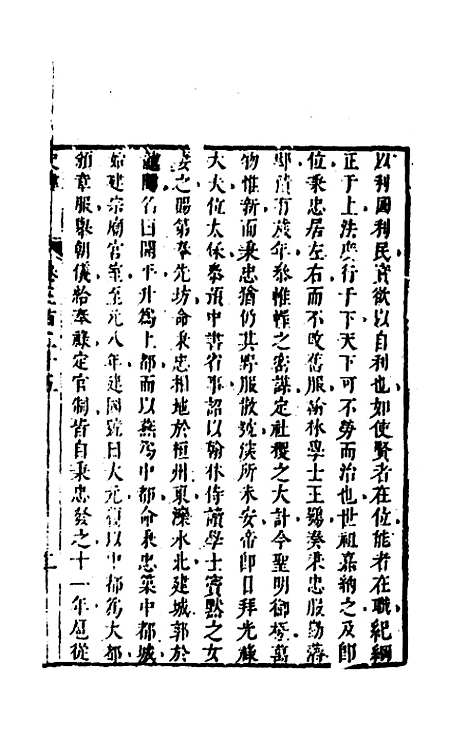 以利國利民實欲以自利也如使賢者在位能者在職紀綱
正于上法度行于下天下可不勞而治也世祖嘉納之及卽
位秉忠居左右而不改舊服翰林學士王鶚奏秉忠服勤藩
邸積有歲年參帷幄之密謀定社稷之大計今聖明御極萬
物惟新而秉忠猶仍其野服散號深所未安帝卽日拜光祿
大夫位太保參預中書省事詔以翰林侍讀學士竇默之女
妻之賜第奉先坊命秉忠相地於桓州東灤水北建城郭於
龍岡名曰開平升爲上都而以燕爲中都命秉忠築中都城
始建宗廟宮室至元八年建國號曰大元復以中都爲大都
頒章服舉朝儀給奉祿定官制皆自秉忠發之十一年扈從